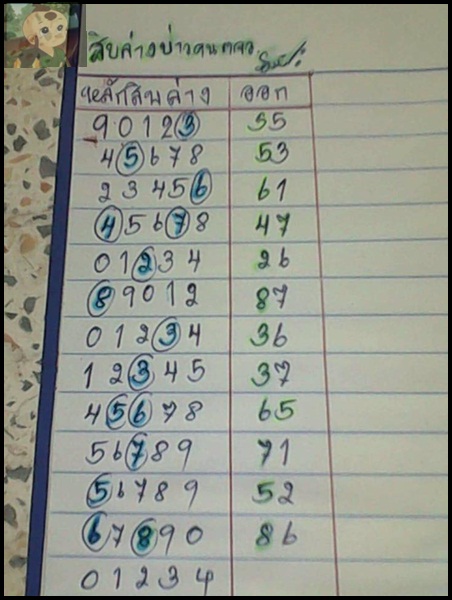 สิบล่างบ่าวคนตจว
หลักสิบล่าง ออก
90123 35
45678 53
23456 61
45678 47
01234 26
89012 87
01234 36
12345 37
45678 65
56789 71
56789 52
67890 86
01234